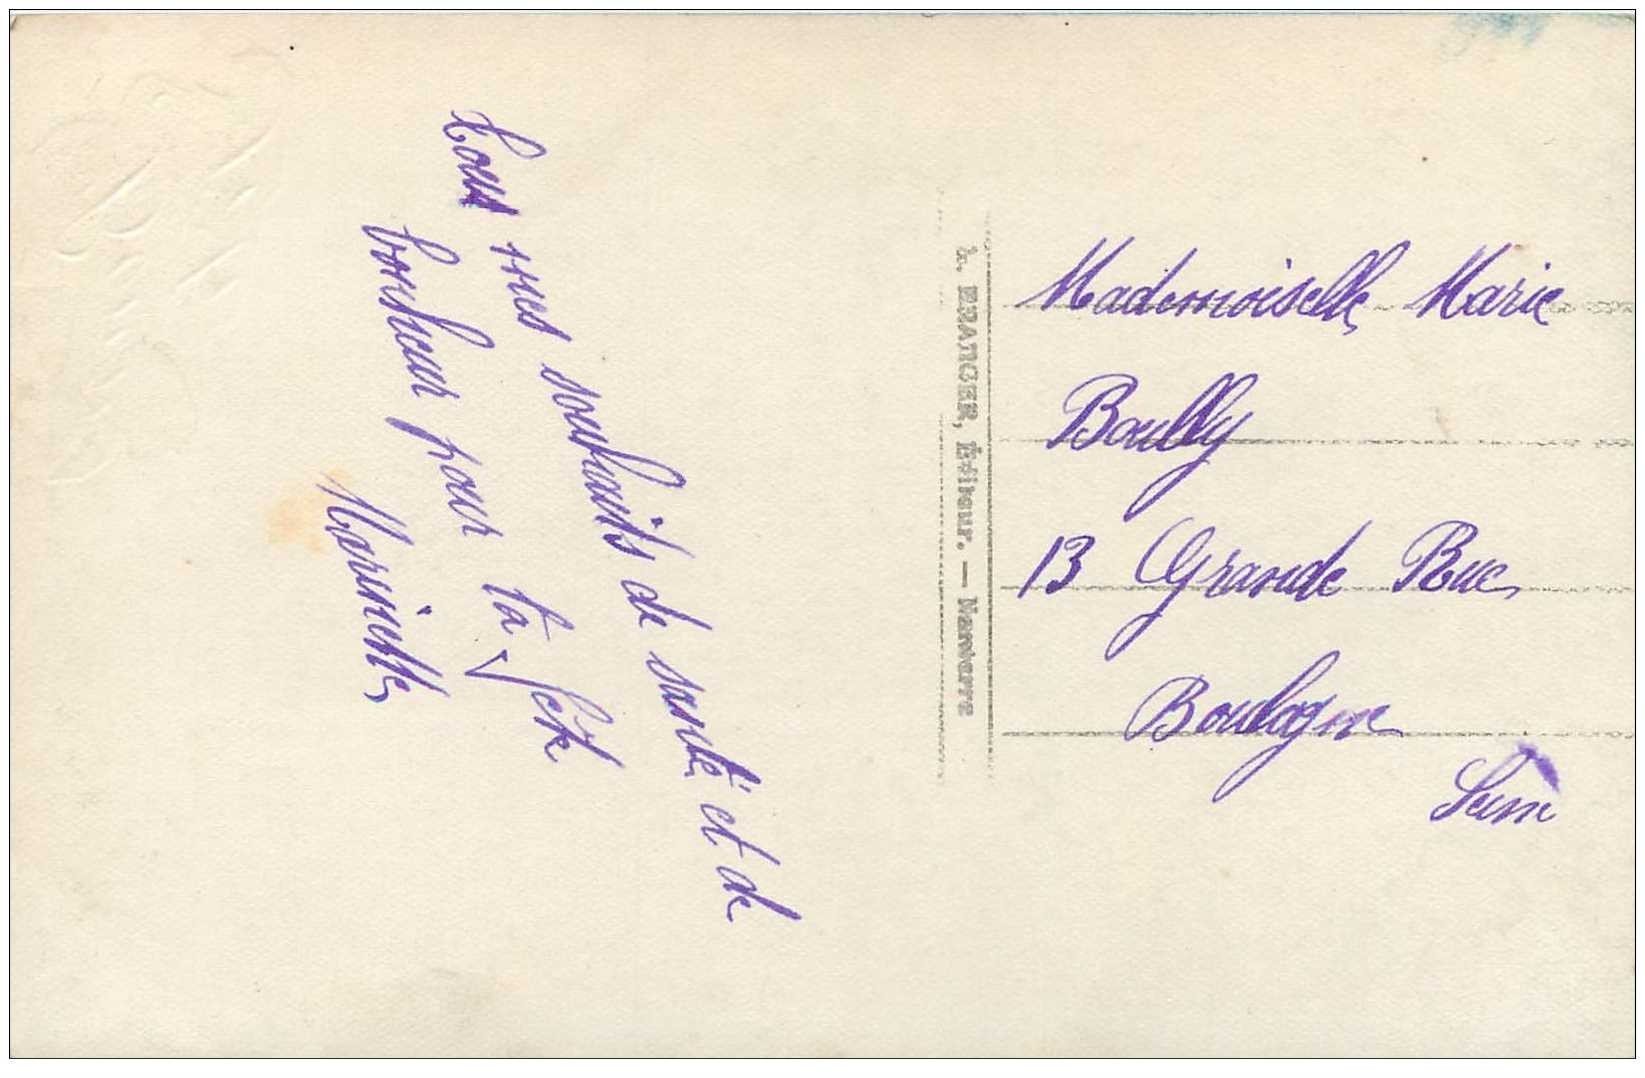 Tous mes souhaits de santé et de
bonheur pour ta fête
Marinette
ERANGER, Éditeur. — Nanterre
Mademoiselle Marie
Boully
13 Grande Rue
Boulogne
Seine